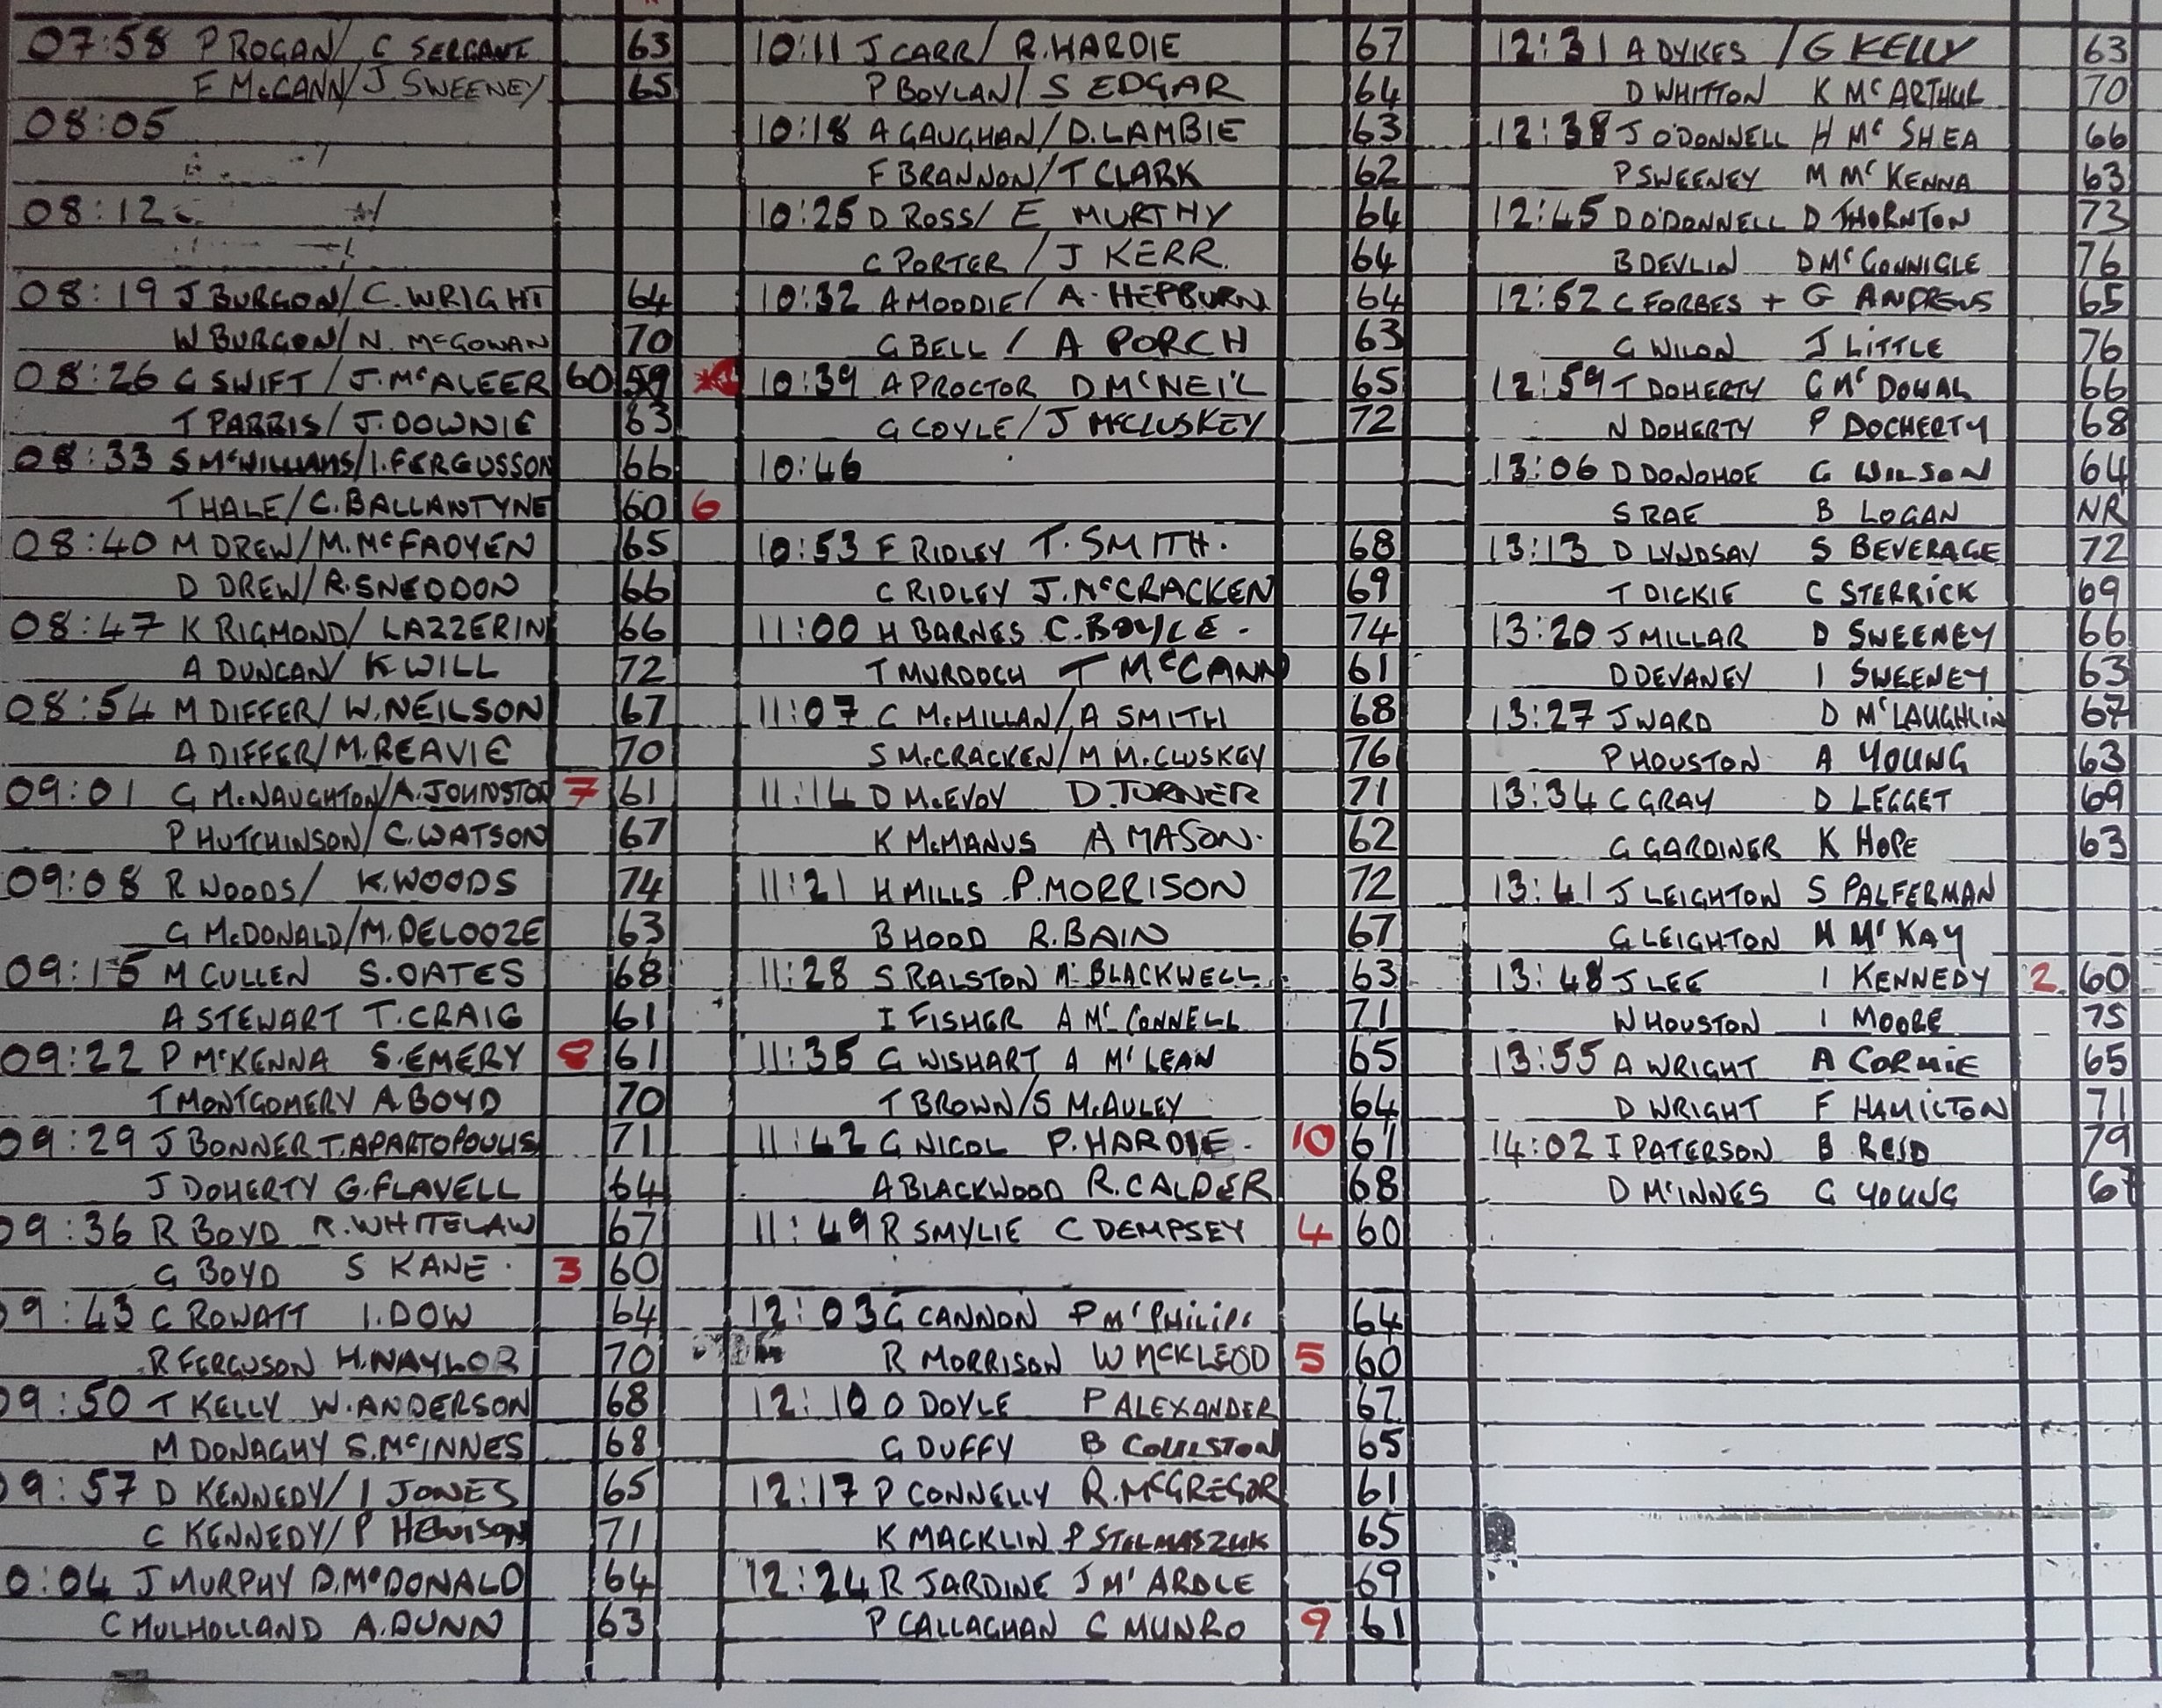 07:58 P ROGAN/ C SERGANT 63
F McCANN/J SWEENEY 65
08:05
08:12
08:19 J BURGON/C.WRIGHT 64
W BURGON/N. McGOWAN 70
08:26 G SWIFT/J.McALEER 60 59
T PARRIS/J.DOWNIE 63
08:33 S McWILLIAMS/I.FERGUSSON 66
T HALE/C.BALLANTYNE 60 6
08:40 M DREW/M.McFADYEN 65
D DREW/R.SNEDDON 66
08:47 K RIGMOND/LAZZERIN 66
A DUNCAN/K WILL 72
08:54 M DIFFER/W.NEILSON 67
A DIFFER/M.REAVIE 70
09:01 G McNAUGHTON/A.JOHNSTON 7 61
P HUTCHINSON/C.WATSON 67
09:08 R WOODS/ K.WOODS 74
G McDONALD/M.DELOOZE 63
09:15 M CULLEN S.OATES 68
A STEWART T.CRAIG 61
09:22 P McKENNA S.EMERY 8 61
T MONTGOMERY A.BOYD 70
09:29 J BONNER T.APARTOPOULIS 71
J DOHERTY G.FLAVELL 64
09:36 R BOYD R.WHITELAW 67
G BOYD S KANE. 3 60
09:43 C ROWATT I.DOW 64
R FERGUSON H.NAYLOR 70
09:50 T KELLY W.ANDERSON 68
M DONAGHY S.McINNES 68
09:57 D KENNEDY/I JONES 65
C KENNEDY/P HEWISON 71
0:04 J MURPHY D.McDONALD 64
C MULHOLLAND A.DUNN 63
10:11 J CARR/R.HARDIE 67
P BOYLAN/S EDGAR 64
10:18 A GAUGHAN/D.LAMBIE 63
F BRANNON/T CLARK 62
10:25 D ROSS/E MURTHY 64
C PORTER/J KERR. 64
10:32 A MOODIE/A.HEPBURN 64
G BELL/A PORCH 63
10:39 A PROCTOR D McNEIL 65
G COYLE/J McCLUSKEY 72
10:46
10:53 F RIDLEY T.SMITH. 68
C RIDLEY J.McCRACKEN 69
11:00 H BARNES C.BOYLE. 74
T MURDOCH T McCANN 61
11:07 C McMILLAN/A SMITH 68
S McCRACKEN/M McCLUSKEY 76
11:14 D McEVOY D.TURNER 71
K McMANUS A MASON. 62
11:21 H MILLS P.MORRISON 72
B HOOD R.BAIN 67
11:28 S RALSTON M.BLACKWELL 63
I FISHER A McCONNELL 71
11:35 G WISHART A McLEAN 65
T BROWN/S McAULEY 64
11:42 G NICOL P.HARDIE. 10 61
A BLACKWOOD R.CALDER 68
11:49 R SMYLIE C DEMPSEY 4 60
12:03 G CANNON P McPHILIPS 64
R MORRISON W McKLEOD 5 60
12:10 O DOYLE P ALEXANDER 67
G DUFFY B COULSTON 65
12:17 P CONNELLY R.McGREGOR 61
K MACKLIN P STELMASZUK 65
12:24 R JARDINE J McARDLE 69
P CALLAGHAN C MUNRO 9 61
12:31 A DYKES / G KELLY 63
D WHITTON K McARTHUR 70
12:38 J O'DONNELL H McSHEA 66
P SWEENEY M McKENNA 63
12:45 D O'DONNELL D THORNTON 73
B DEVLIN D McGONNIGLE 76
12:52 C FORBES + G ANDREWS 65
G WILON J LITTLE 76
12:59 T DOHERTY G McDOWAL 66
N DOHERTY P DOCHERTY 68
13:06 D DONOHOE G WILSON 64
S RAE B LOGAN NR
13:13 D LYNDSAY S BEVERAGE 72
T DICKIE C STERRICK 69
13:20 J MILLAR D SWEENEY 66
D DEVANEY I SWEENEY 63
13:27 J WARD D McLAUGHLIN 67
P HOUSTON A YOUNG 63
13:34 C GRAY D LEGGET 69
G GARDINER K HOPE 63
13:41 J LEIGHTON S PALFERMAN
G LEIGHTON H McKAY
13:48 J LEE I KENNEDY 2 60
W HOUSTON I MOORE 75
13:55 A WRIGHT A CORMIE 65
D WRIGHT F HAMILTON 71
14:02 I PATERSON B REID 79
D McINNES G YOUNG 67